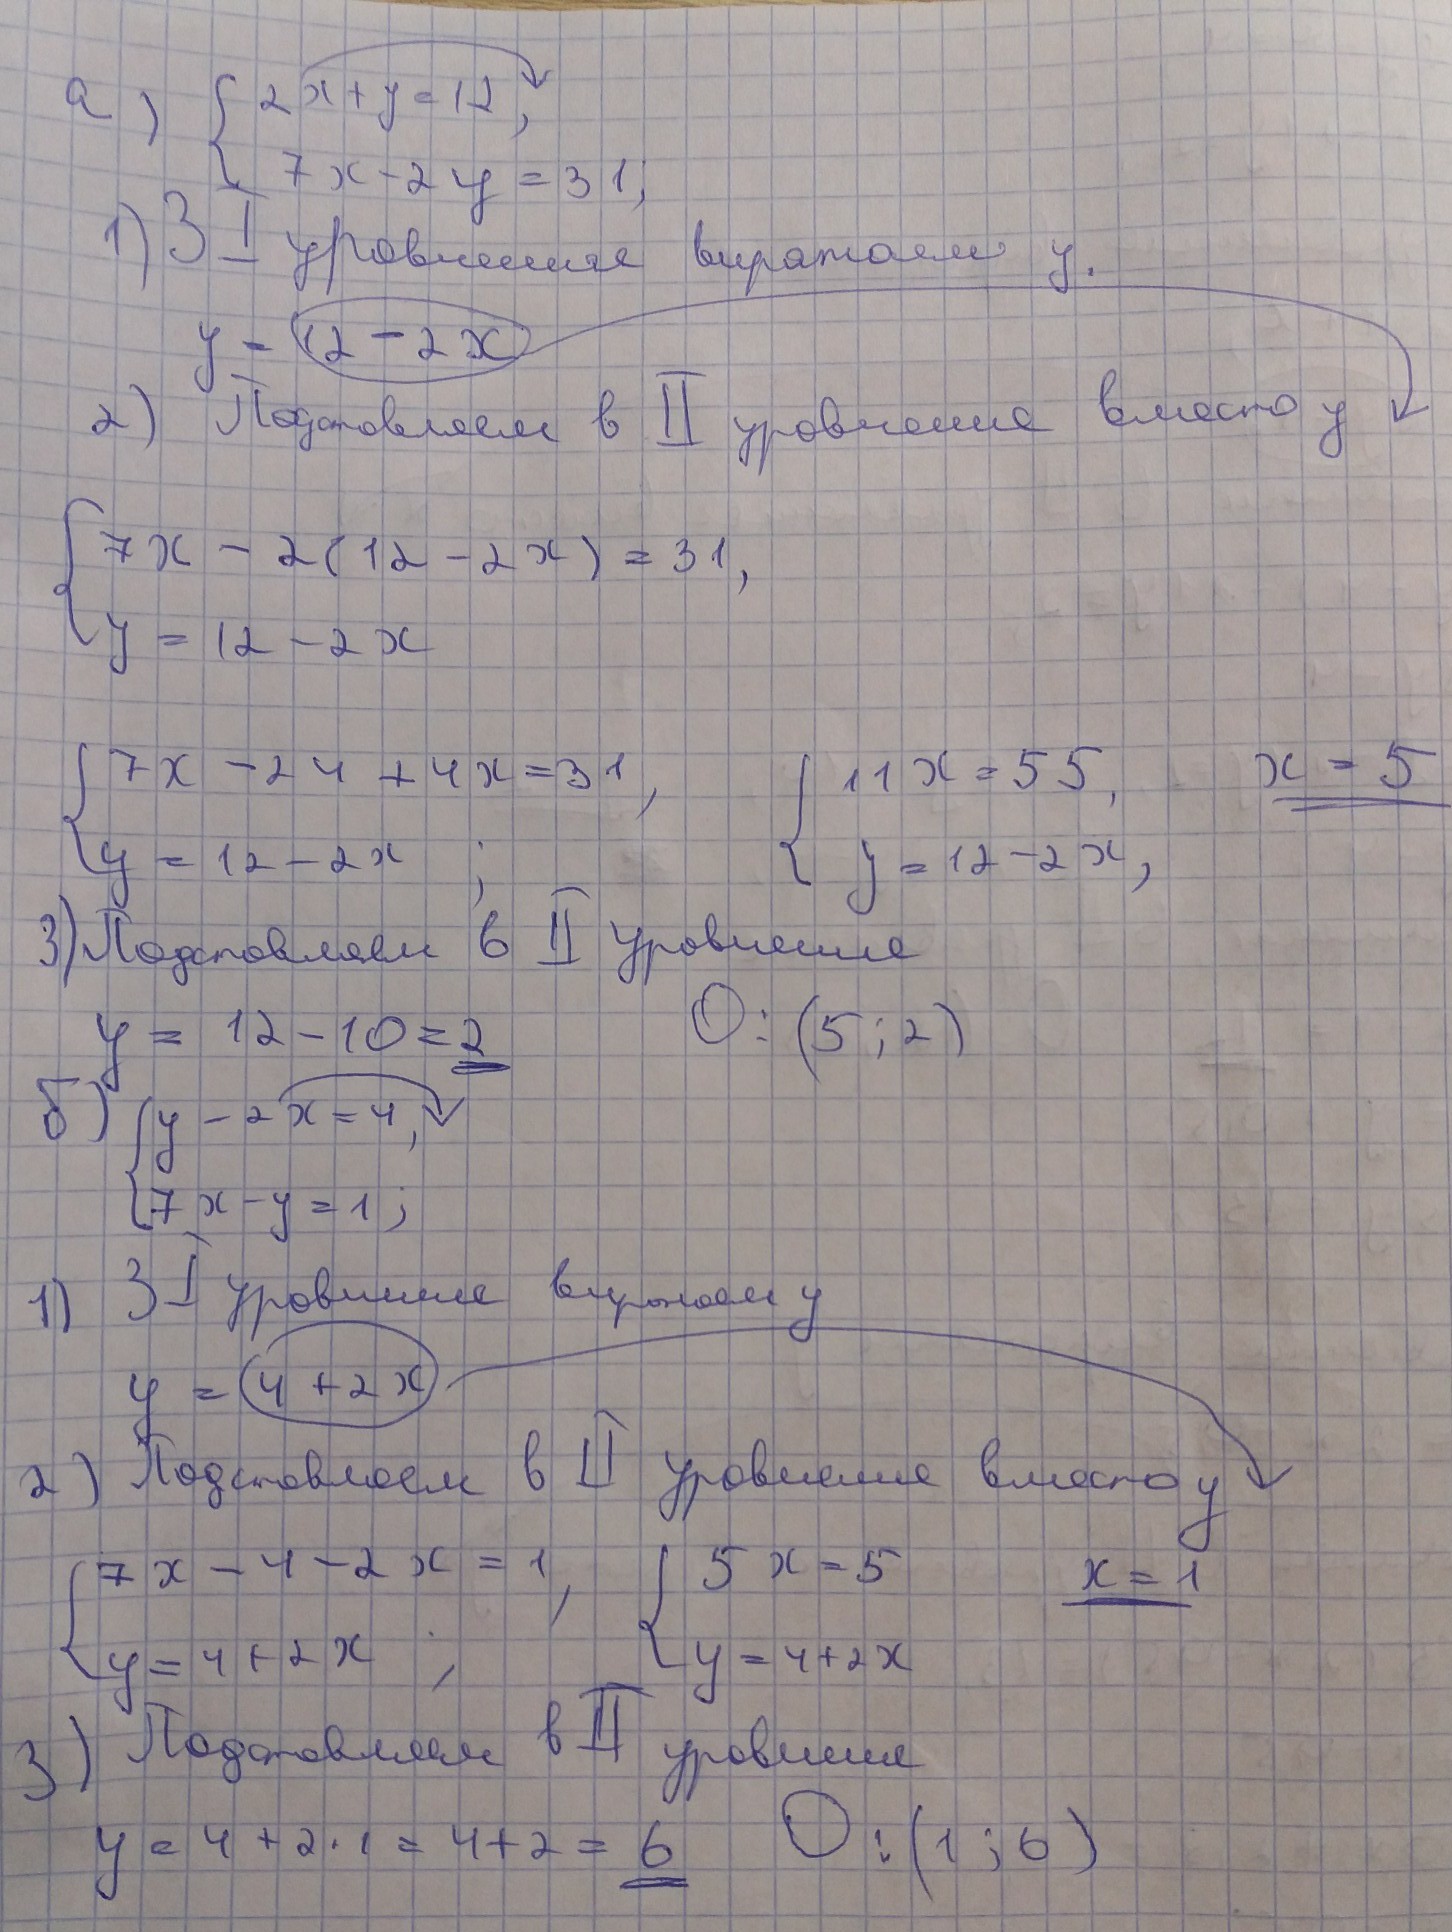 а) { 2x + y = 12,
7x - 2y = 31;
1) З I уравнения выражаем y.
y = 12 - 2x
2) Подставляем в II уравнение вместо y
{ 7x - 2(12 - 2x) = 31,
y = 12 - 2x
{ 7x - 24 + 4x = 31, { 11x = 55, x = 5
y = 12 - 2x ; y = 12 - 2x,
3) Подставляем в II уравнение
y = 12 - 10 = 2 О: (5 ; 2)
б) { y - 2x = 4,
7x - y = 1;
1) З I уравнения выражаем y
y = 4 + 2x
2) Подставляем в II уравнение вместо y
{ 7x - 4 - 2x = 1, { 5x = 5 x = 1
y = 4 + 2x ; y = 4 + 2x
3) Подставляем в II уравнение
y = 4 + 2 · 1 = 4 + 2 = 6 О: (1 ; 6)